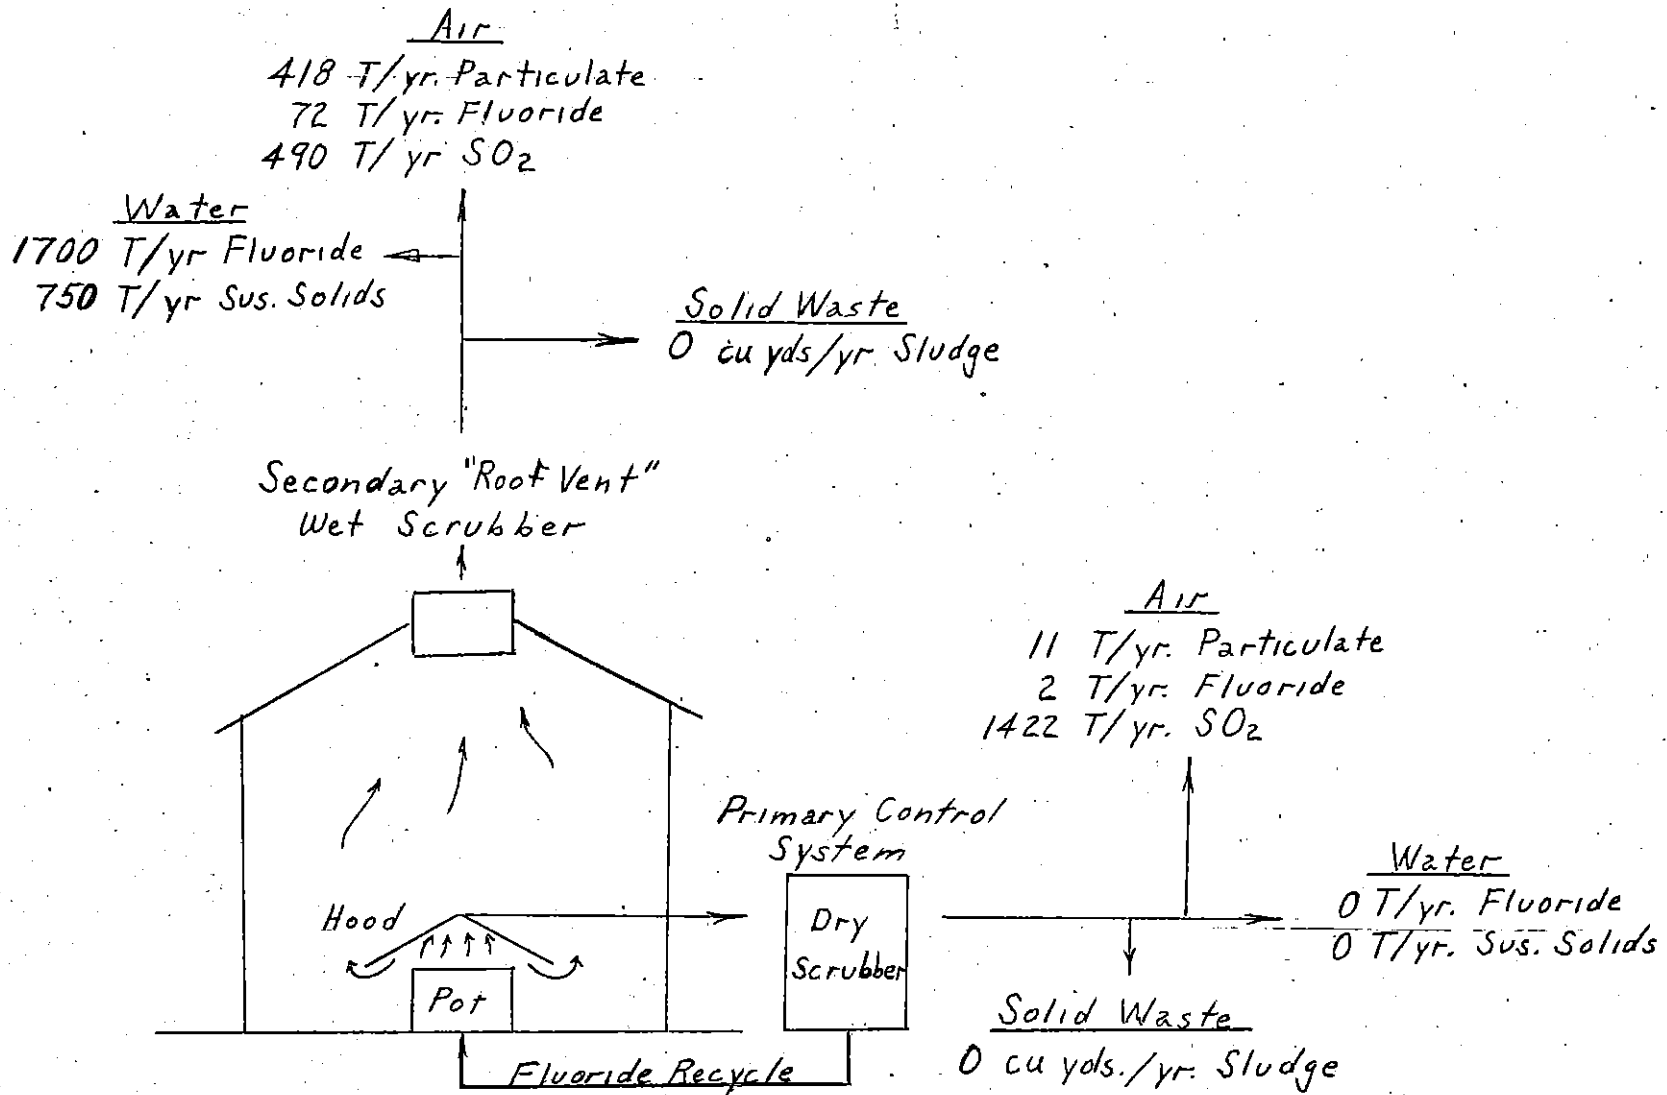 Air
418 T/yr. Particulate
72 T/yr. Fluoride
490 T/yr SO2
Water
1700 T/yr Fluoride
750 T/yr Sus. Solids
Solid Waste
0 cu yds/yr. Sludge
Secondary "Roof Vent"
Wet Scrubber
Air
11 T/yr. Particulate
2 T/yr. Fluoride
1422 T/yr. SO2
Primary Control
System
Water
0 T/yr. Fluoride
0 T/yr. Sus. Solids
Hood
Dry
Scrubber
Pot
Solid Waste
0 cu yds./yr. Sludge
Fluoride Recycle